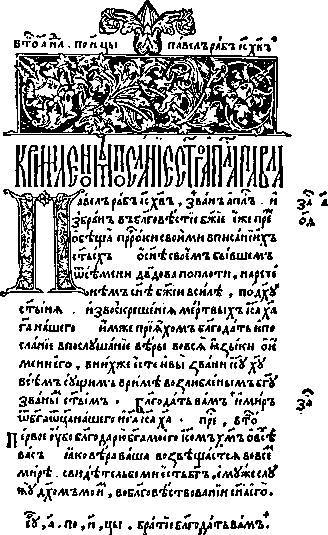 павелъ рабъ і҃с хв҃ъ
Къ римлѧномъ посланїе ст҃го ап҃ла павла
Павелъ рабъ і҃с хв҃ъ, званъ ап҃лъ. и
збранъ въ бл҃говѣстїе бж҃їе еже пре
ѡбѣща пр҃рки своими в писанїихъ
ст҃ыхъ ѡ сн҃ѣ своемъ бывшемъ
ѿ сѣмени дв҃дова по плоти, нарече
ннѣмъ сн҃ѣ бж҃їи в силѣ, по дх҃у
ст҃ыни. из воскресенїѧ мертвыхъ і҃са х҃а
г҃а нашего. имже прїѧхомъ благодать и по
сланїе в послушанїе вѣры во всѣхъ ꙗзыцѣхъ ѡ и
мени его, в нихже есте и вы звани і҃су х҃у
всѣмъ сущимъ в римѣ возлюбленымъ бг҃у
званы ст҃ымъ. Благодать вамъ и миръ
ѿ бг҃а ѡц҃а нашего и г҃а і҃са х҃а. пре, вто
Первое оубо благодарю бг҃а моего і҃сомъ х҃мъ ѡ всѣ
васъ ꙗко вѣра ваша возвѣщаетсѧ во всем
мирѣ. свидѣтель бо ми есть бг҃ъ, емуже слу
жу дх҃омъ моим, во благовѣствованїи сн҃а его.
братїе благодать вамъ